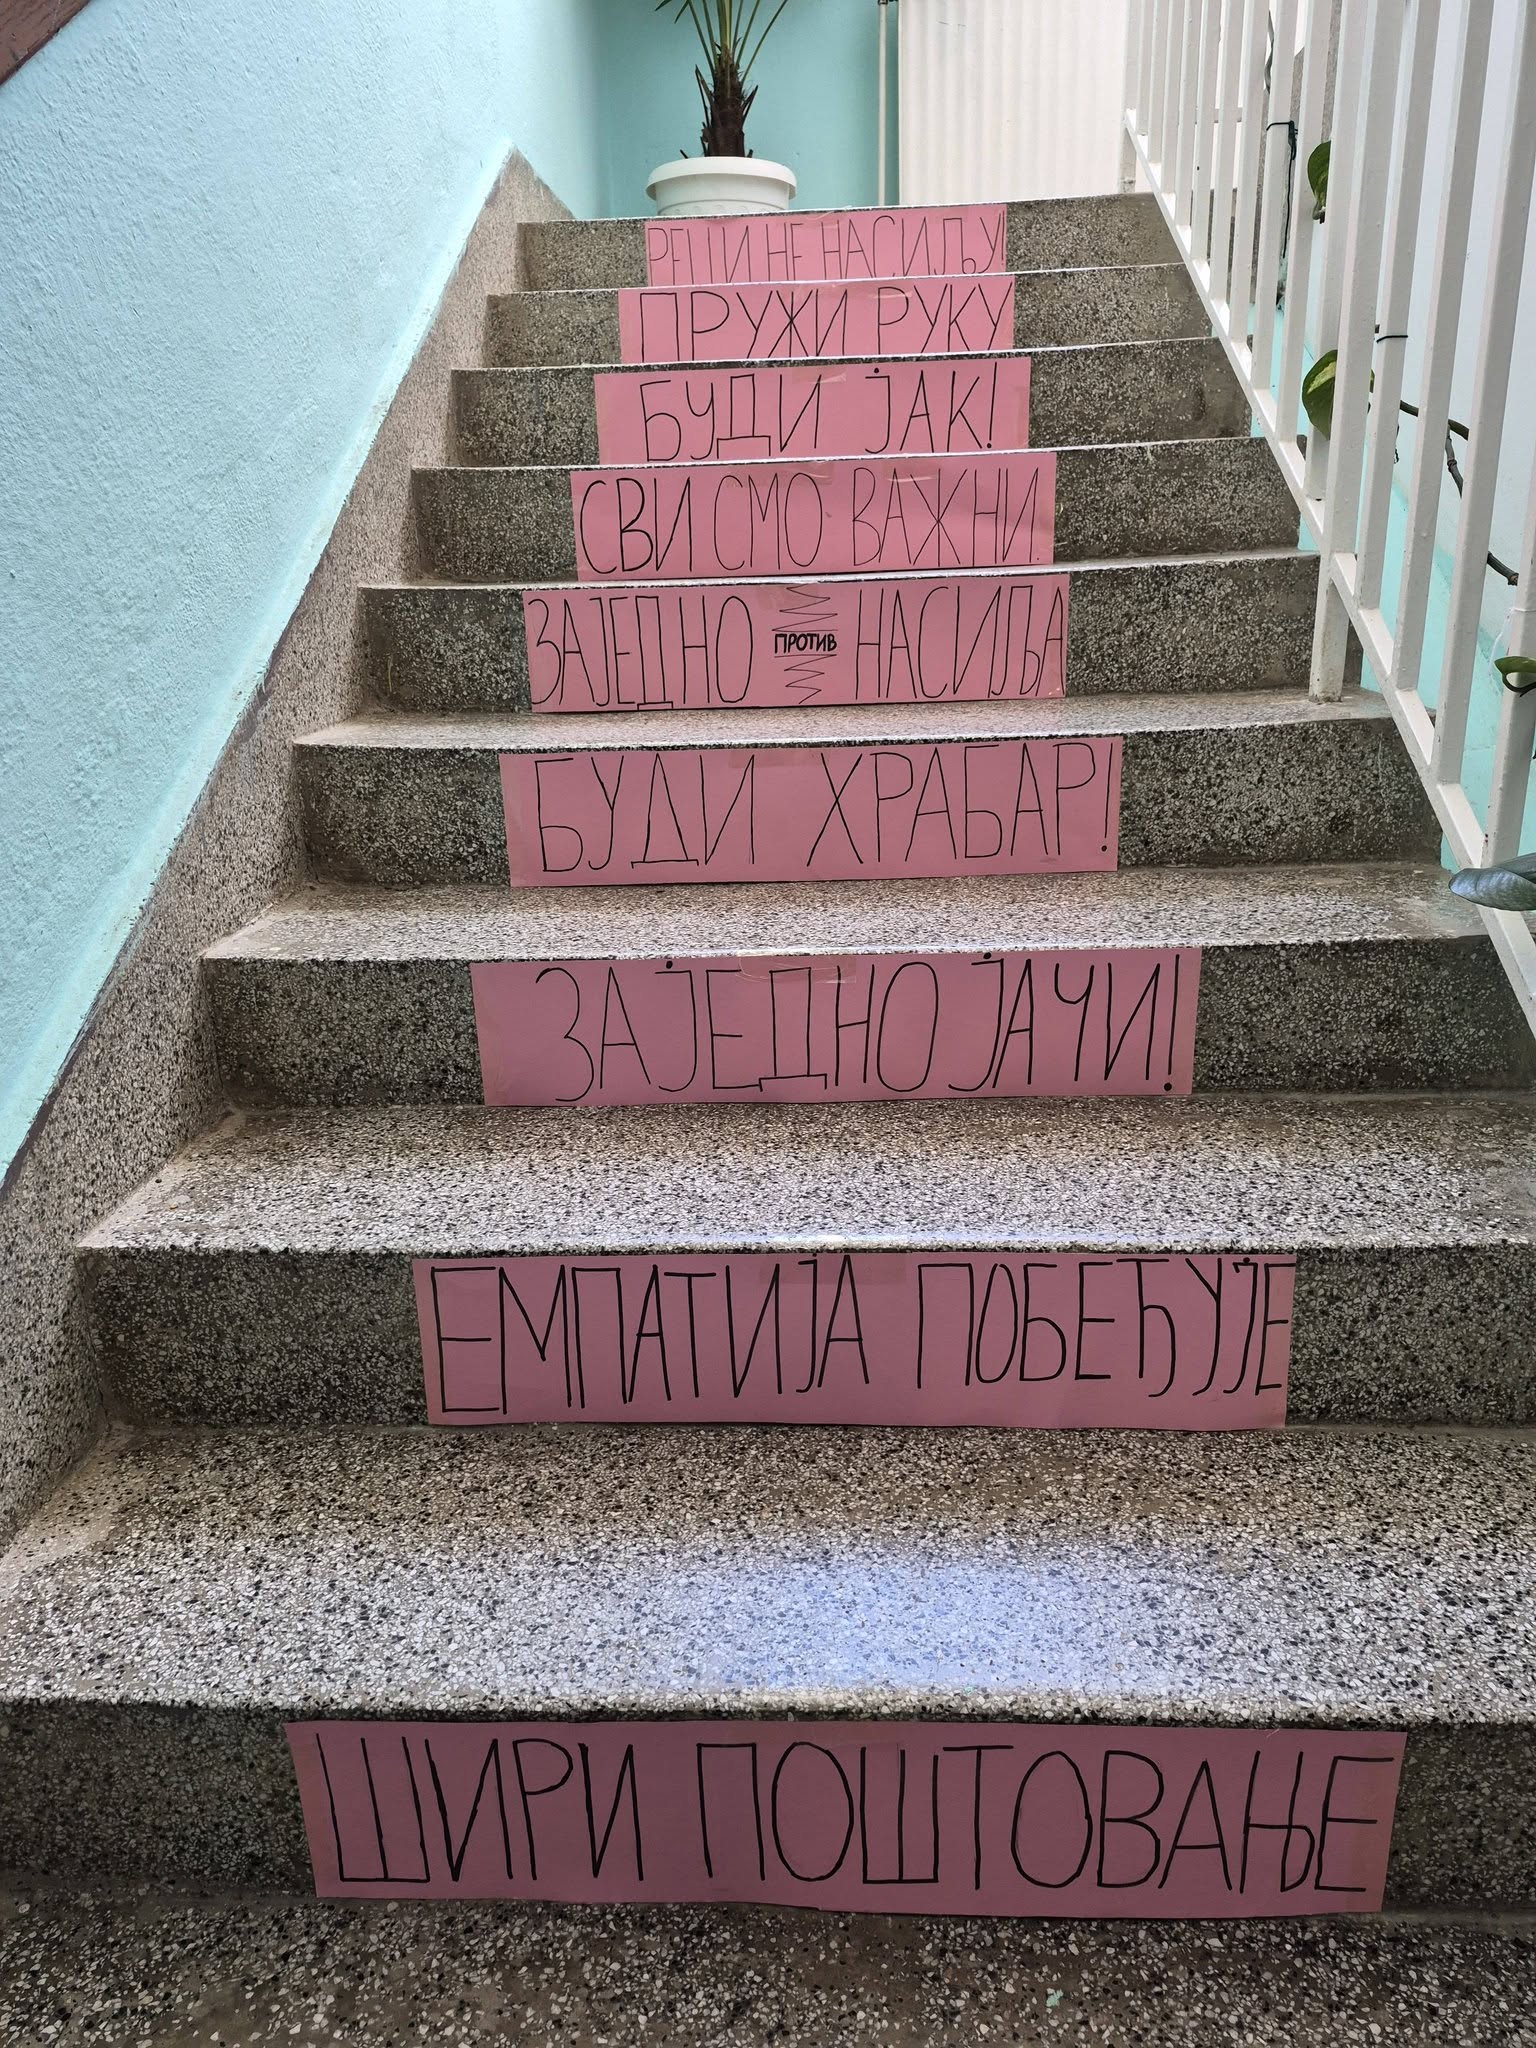 РЕЦИ НЕ НАСИЉУ!
ПРУЖИ РУКУ
БУДИ ЈАК!
СВИ СМО ВАЖНИ.
ЗАЈЕДНО ПРОТИВ НАСИЉА
БУДИ ХРАБАР!
ЗАЈЕДНО ЈАЧИ!
ЕМПАТИЈА ПОБЕЂУЈЕ
ШИРИ ПОШТОВАЊЕ